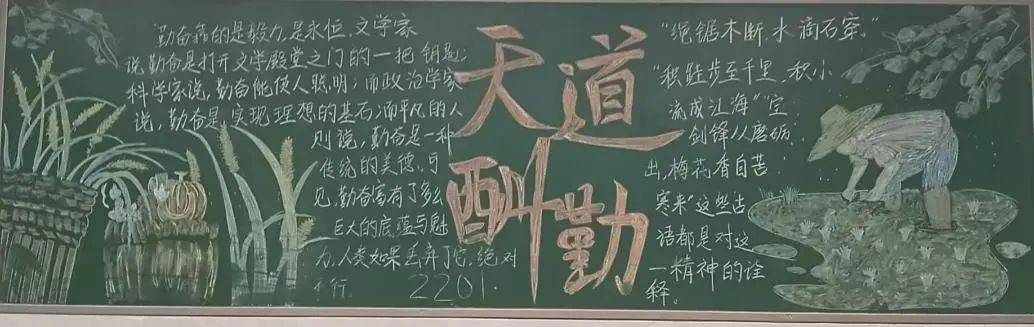 勤奋靠的是毅力,是永恒,文学家
说勤奋是打开文学殿堂之门的一把钥匙;
科学家说,勤奋能使人聪明;而政治学家
说,勤奋是实现理想的基石;而平凡的人
则说,勤奋是一种
传统的美德,可
见,勤奋富有了多么
巨大的底蕴与魅
力,人类如果丢弃了它,绝对
不行。
2201.
天道
酬勤
"绳锯木断,水滴石穿。"
"积跬步至千里,积小
流成江海""宝
剑锋从磨砺
出,梅花香自苦
寒来"这些古
语都是对这
一精神的诠
释。